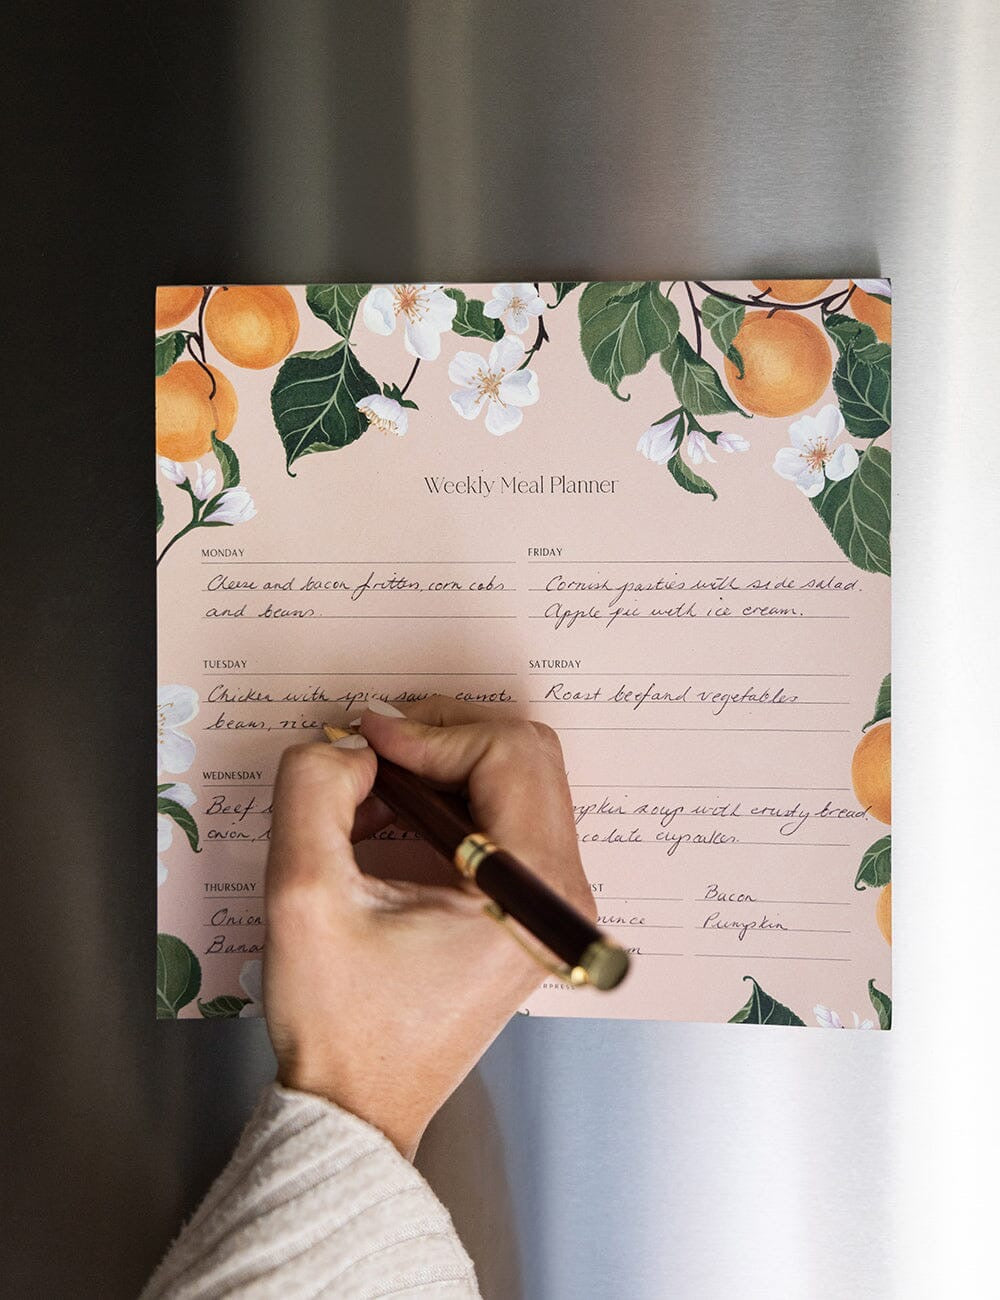 Weekly Meal Planner
MONDAY
Cheese and bacon fritters, corn cobs
and beans.
TUESDAY
Chicken with spicy sauce carrots
beans, rice
WEDNESDAY
Beef
onion,
THURSDAY
Onion
FRIDAY
Cornish pasties with side salad.
Apple pie with ice cream.
SATURDAY
Roast beef and vegetables
soup with crusty bread.
cupcakes.
Bacon
mince
Pumpkin